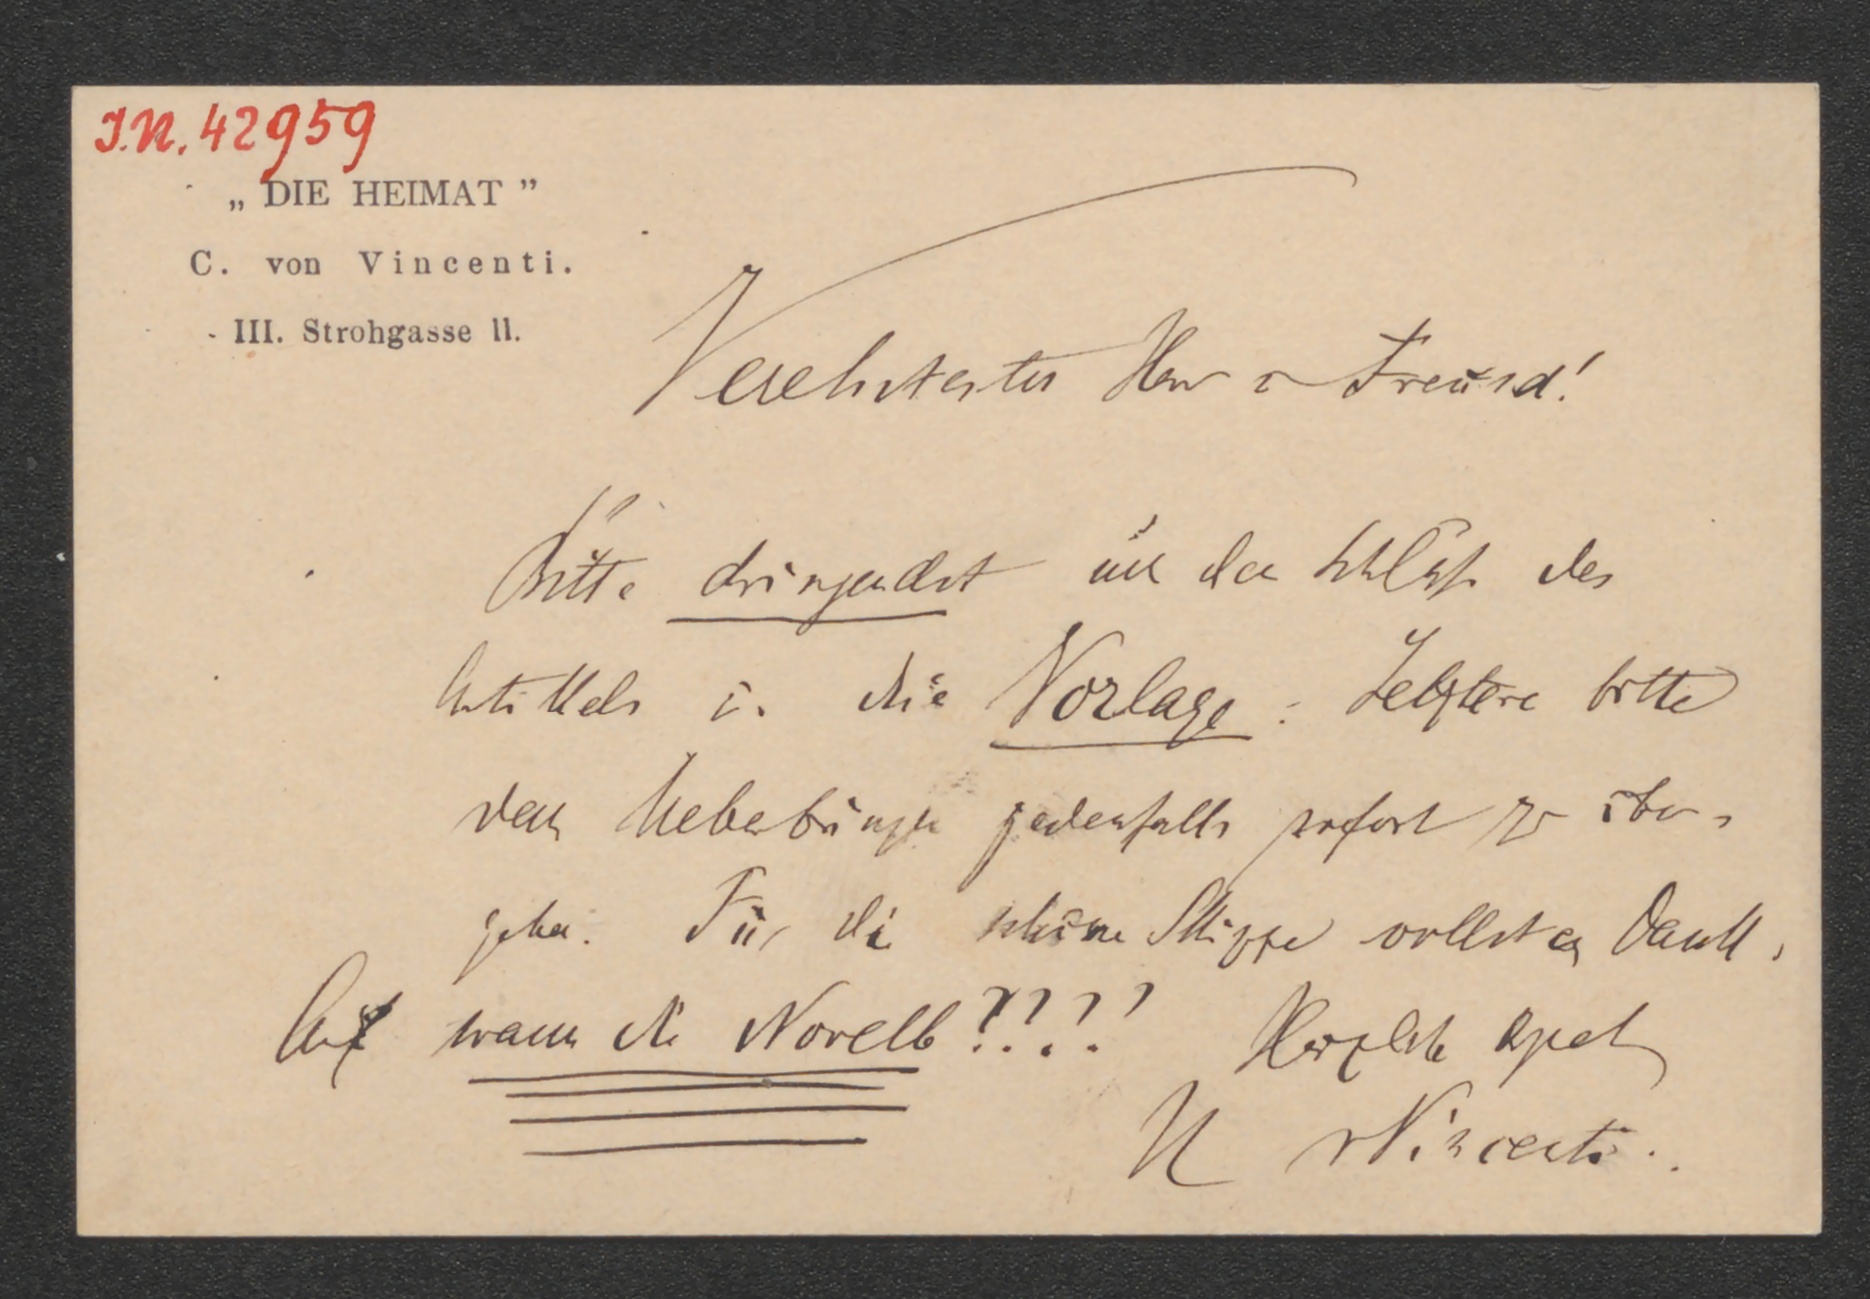 I.N. 42959
„ DIE HEIMAT ”
C. von Vincenti.
III. Strohgasse 11.
Verehrtester Herr u Freund!
Bitte dringendst um den Schluß des
Artikels u. die Vorlage: Letztere bitte
dem Ueberbringer jedenfalls sofort zu über-
geben. Für die schöne Skizze vollsten Dank,
Auf wann die Novelle????
Herzlichst ergebn
v Vincenti.